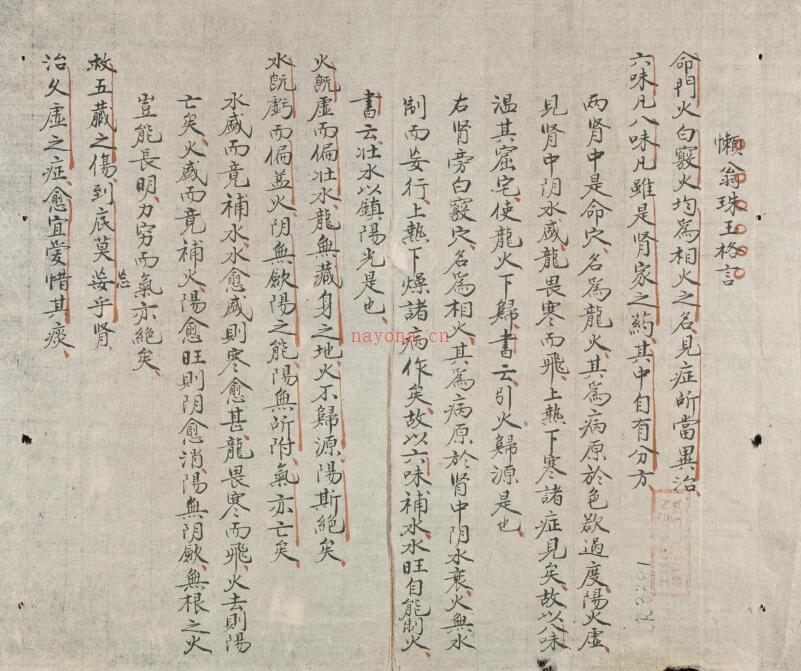 懶翁珠玉格言
命門火白竅火均爲相火之名、見症所當異治、
六味凡八味凡雖是肾家之药、其中自有分方、
两肾中是命穴、名爲龍火、其爲病原於色欲過度、陽火虚、
見肾中阴水盛、龍畏寒而飛、上热下寒諸症見矣、故以八味
温其窟宅、使龍火下歸、書云引火歸源是也、
右肾旁白竅穴、名爲相火、其爲病原於肾中阴水衰、火無水
制而妄行、上热下燥諸病作矣、故以六味補水、水旺自能制火、
書云、壮水以鎮陽光是也、
火既虚而偏壮水、龍無藏身之地、火不歸源、陽斯絕矣、
水既虧而偏益火、阴無歛陽之能、陽無所附、氣亦亡矣、
水盛而竟補水、水愈盛則寒愈甚、龍畏寒而飛、火去則陽
亡矣、火盛而竟補火、陽愈旺則阴愈消、陽無阴歛、無根之火
豈能長明、力穷而氣亦絕矣、
救五藏之傷、到底莫妄乎肾、
忘
治久虚之症、愈宜爱惜其痰、
nayona.cn